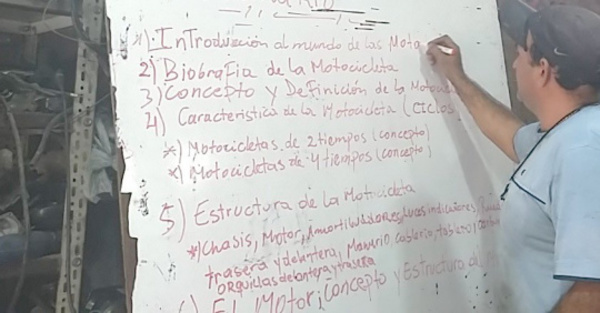 1) Introducción al mundo de las Moto
2) Biografia de la Motocicleta
3) Concepto y Definición de la Moto
4) Caracteristica de la Motocicleta (ciclos
*) Motocicletas de 2 tiempos (concepto)
*) Motocicletas de 4 tiempos (concepto)
5) Estructura de la Motocicleta
*) Chasis, Motor, Amortiguadores, Luces indicadores,
trasera y delantera, Manurio tablero,
orquillas delantera y trasera
El Motor; Concepto y Estructura